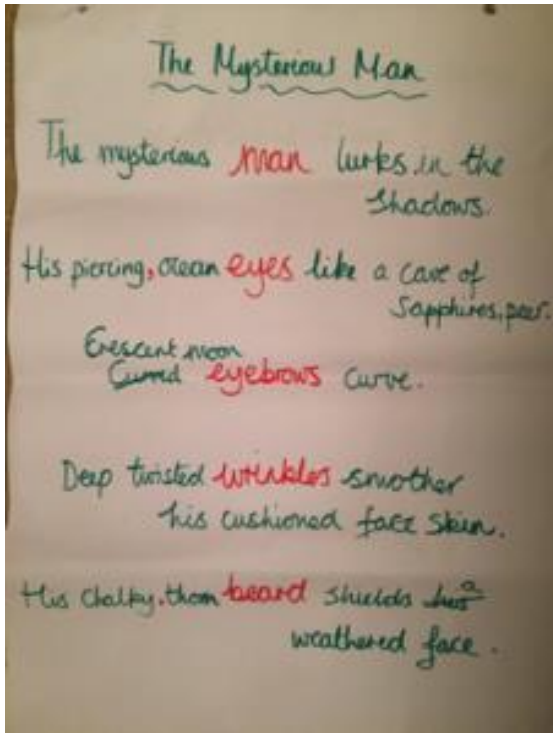 The Mysterious Man
The mysterious man lurks in the
shadows.
His piercing, ocean eyes like a cave of
sapphires, peer.
Crescent moon
Curved eyebrows curve.
Deep twisted wrinkles smother
his cushioned face skin.
His chalky, thorn beard shields his a
weathered face.